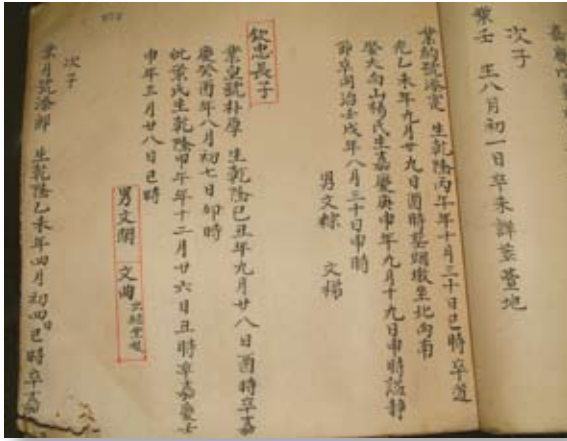 次子
業壬 生八月初一日卒未詳葬舊地
業約號添寔 生乾隆丙午年十月三十日巳時卒道
光乙未年九月廿九日酉時葬烟墩坐北向南
娶大向山楊氏生嘉慶庚申年九月十九日申時謚靜
節卒同治壬戌年八月三十日申時
男文綜 文楊
欽忠長子
業皇號朴厚 生乾隆己丑年九月廿八日酉時卒嘉
慶癸酉年八月初七日卯時
妣葉氏生乾隆甲午年十二月廿六日丑時卒嘉慶壬
申年三月廿八日巳時
男文開 文尚
次子
業月號添郎 生乾隆乙未年四月初四巳時卒嘉